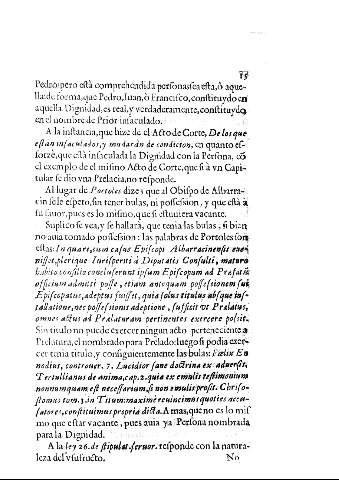 15
Pedro: pero està comprehendida persona sea esta, ò aque-
lla: de forma, que Pedro, Iuan, ò Francisco, constituydo en
aquella Dignidad, es real, y verdaderamente, constituydo
en el nombre de Prior insaculado.
A la instancia, que hize de el Acto de Corte, De los que
estan insaculados, y mudaràn de condicion, en quanto es-
forzè, que està insaculada la Dignidad con la Persona, cõ
el exemplo de el mismo Acto de Corte, que si à vn Capi-
tular se dio vna Prelacia, no responde.
Al lugar de Portoles dize: que al Obispo de Albarra-
cin se le espero, sin tener bulas, ni possession, y que està à
su fauor, pues es lo mismo, que si estuuiera vacante.
Suplico se vea, y se hallarà, que tenia las bulas, si bien
no auia tomado possession: las palabras de Portoles son
estas: In quare, cum casus Episcopi Albarracinensis eue-
nisset, plerique Iurisperiti à Diputatis Consulti, maturo
habito consilio concluserunt ipsum Episcopum ad Præfatũ
officium admitti posse, etiam antequam possessionem sui
Episcopatus, adeptus fuisset, quia solus titulus absque ins-
tallatione, nec possessionis adeptione, sufficit vt Prælatus,
omnes actus ad Prælaturam pertinentes exercere possit.
Sin titulo no puede exercer ningun acto perteneciente à
Prelatura, el nombrado para Prelado: luego si podia exer-
cer tenia titulo, y consiguientemente las bulas: Fælix En
nodius, controuer. 7. Lucidior sane doctrina ex aduersit.
Tertullianus de anima, cap. 2. quia ex emulis testimonium
nonnumquam est necessarium, si non emulis prosit. Chriso-
stomus tom. 3. in Titum: maximè reuincimus quoties accu-
satores, constituimus propria dicta. A mas, que no es lo mis
mo que estar vacante, pues auia ya Persona nombrada
para la Dignidad.
A la ley 26. de stipulat. seruor. responde con la natura-
leza del vsufructo.
No